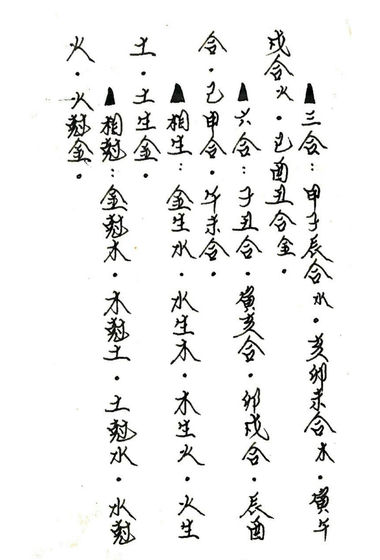 ▲三合：甲子辰合水．亥卯未合木．寅午
戌合火．巳酉丑合金．
▲六合：子丑合．寅亥合．卯戌合．辰酉
合．巳申合．午未合．
▲相生：金生水．水生木．木生火．火生
土．土生金．
▲相尅：金尅木．木尅土．土尅水．水尅
火．火尅金．